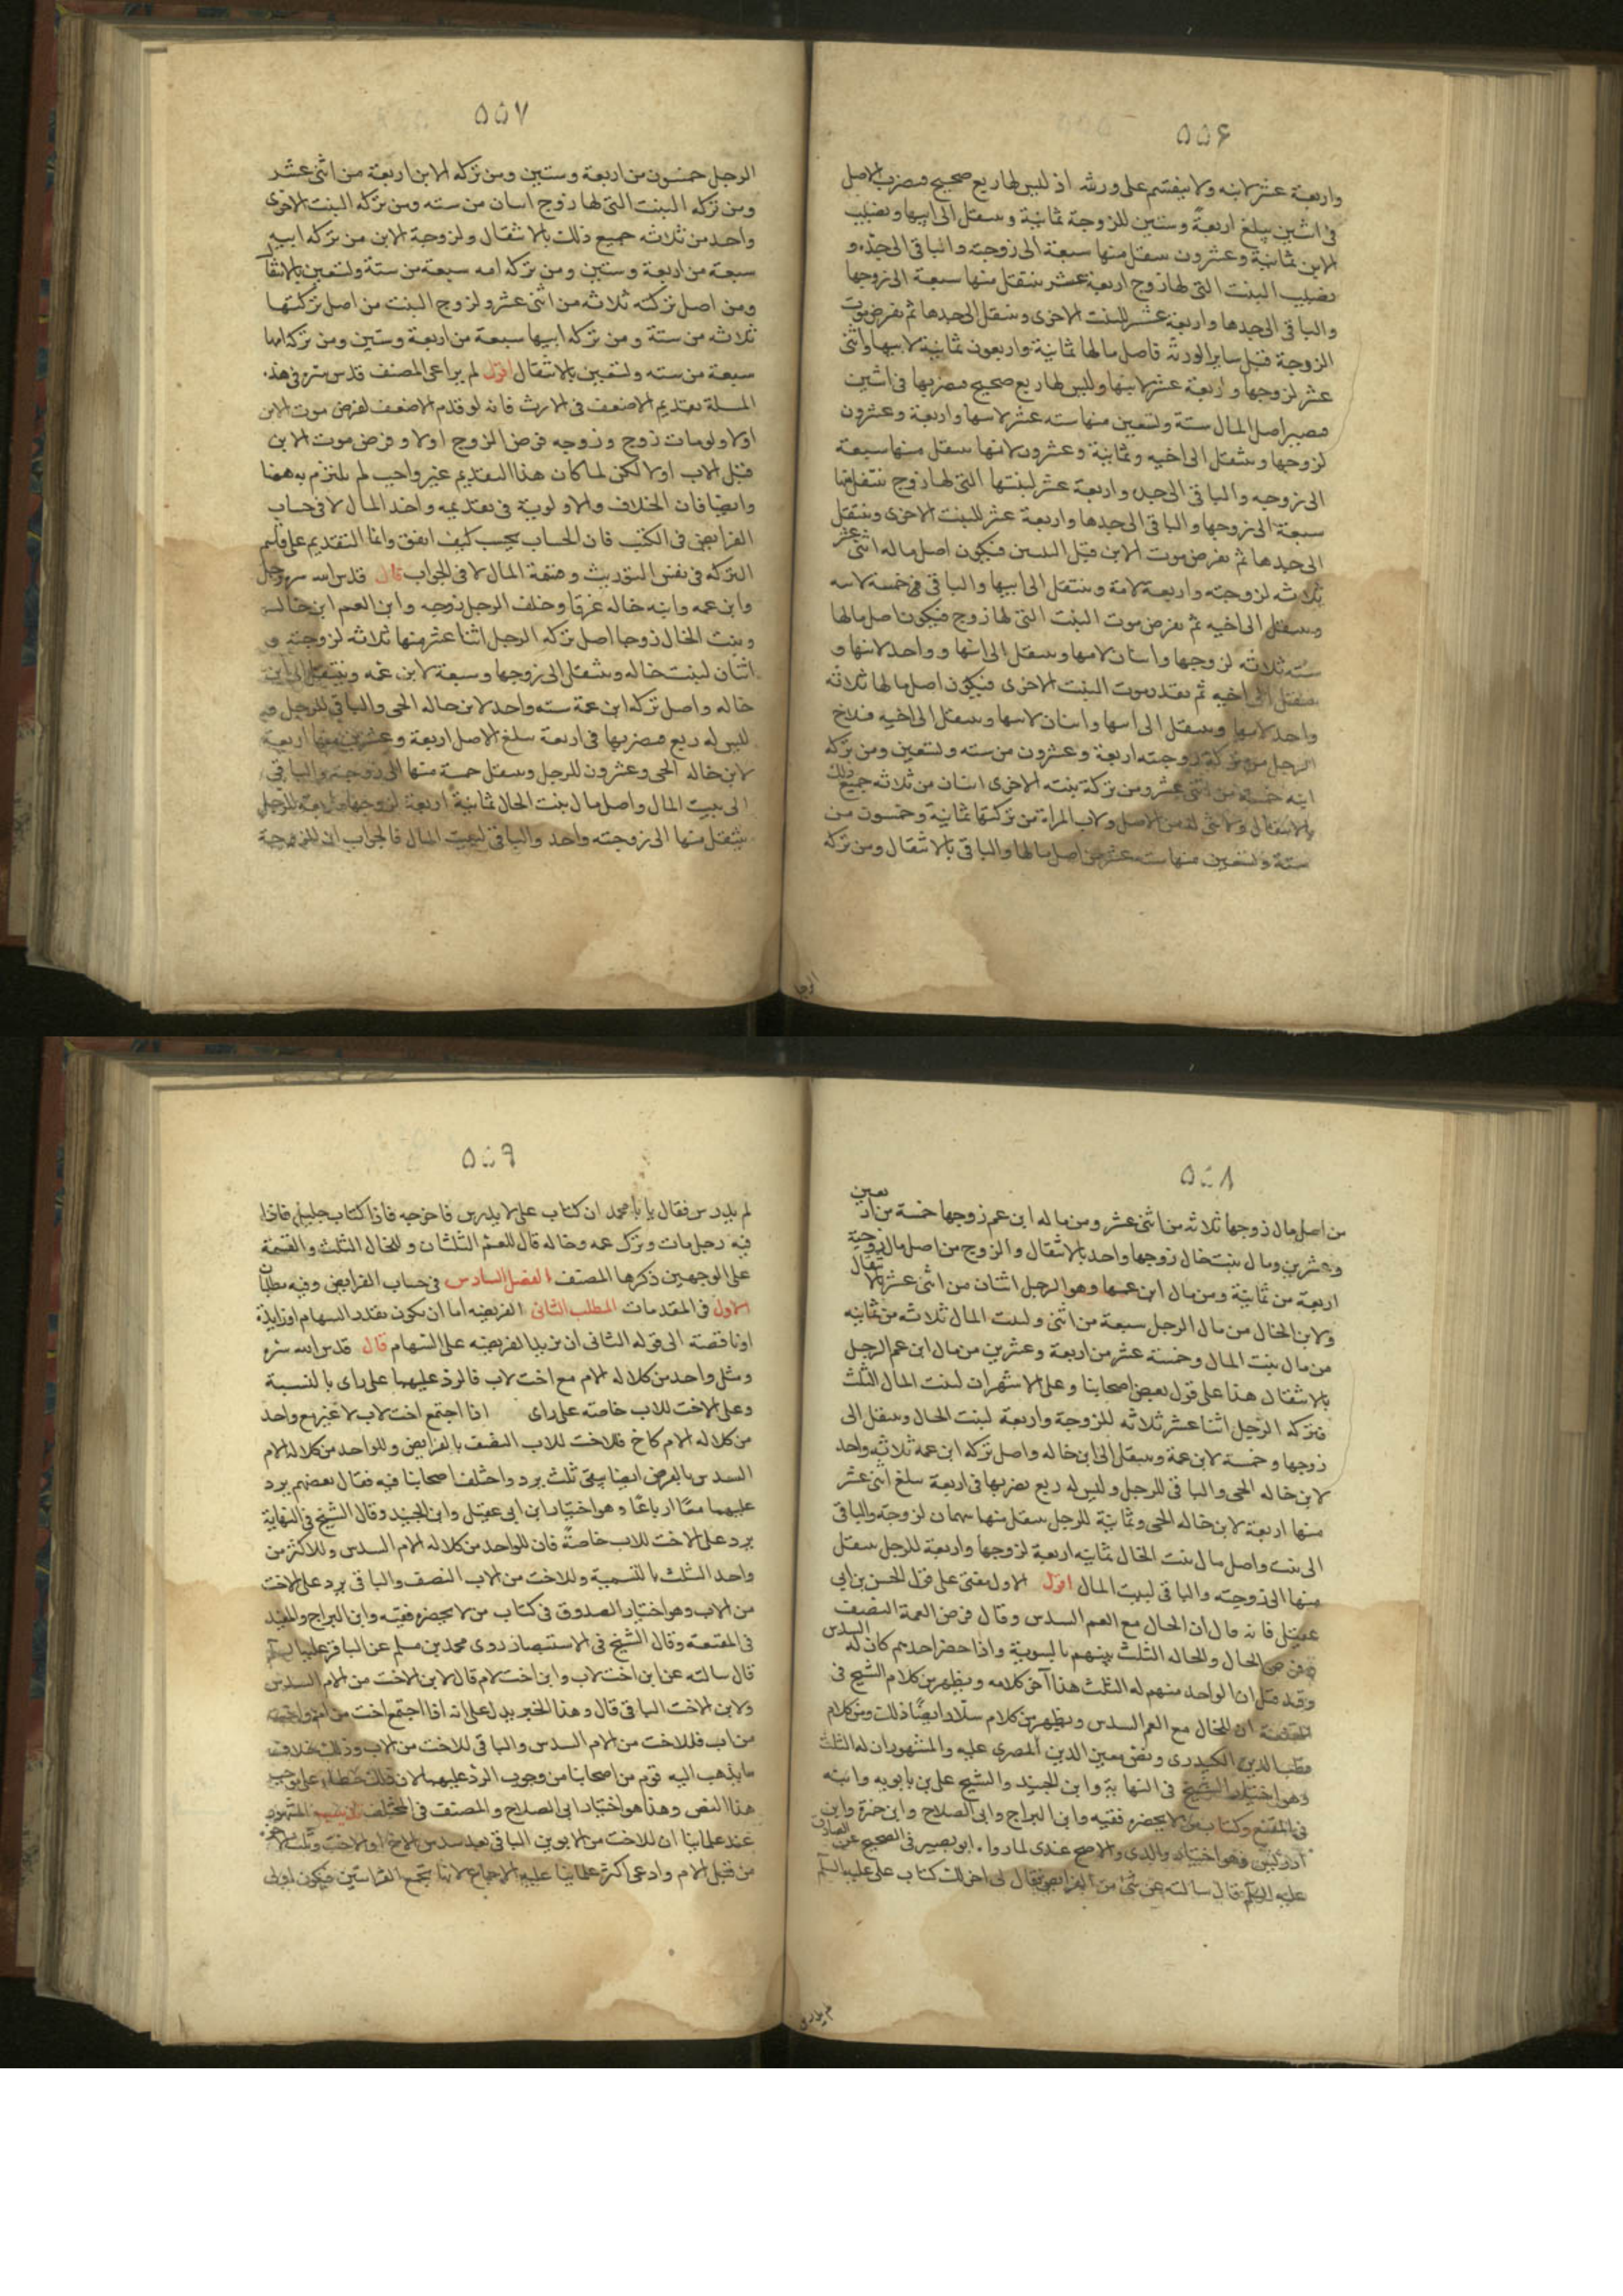 ٥٥٦
واربعة عشر لابنه ولا ينقسم على ورثته اذ ليس لها ربع صحيح فيضرب الاصل
فى اثنين يبلغ اربعة وستين للزوجة ثمانية وينتقل الى ابيها ونصيب
الابن ثمانية وعشرون ينتقل منها سبعة الى زوجته والباقى الى جده و
نصيب البنت التى لها زوج اربعة عشر ينتقل منها سبعة الى زوجها
والباقى الى جدها واربعة عشر للبنت الاخرى وينتقل الى جدها ثم نفرض موت
الزوجة قبل ساير الورثه فاصل مالها ثمانية واربعون ثمانية لابيها واثنى
عشر لزوجها واربعة عشر لابنها وليس لها ربع صحيح فيضربها فى اثنين
فيصير اصل المال ستة وتسعين منها سته عشر لابيها واربعة وعشرون
لزوجها وينتقل الى اخيه وثمانية وعشرون لابنها ينتقل منها سبعة
الى زوجيه والباقى الى جده واربعة عشر لبنتها التى لها زوج ينتقل منها
سبعة الى زوجها والباقى الى جدها واربعة عشر للبنت الاخرى وينتقل
الى جدها ثم نفرض موت الابن قبل فيكون اصل ماله اثنى عشر
ثلاثه لزوجته واربعة لامه وينتقل الى ابيها والباقى فى خمسة لابيه
وينتقل الى اخيه ثم نفرض موت البنت التى لها زوج فيكون اصل مالها
سته ثلاثه لزوجها واثنان لامها وينتقل الى ابيها وواحد لابيها و
ينتقل الى اخيه ثم نقدر موت البنت الاخرى فيكون اصل مالها ثلاثه
واحد لامها وينتقل الى ابيها واثنان لابيها وينتقل الى اخيه فلاخ
الرجل من تركة زوجته اربعة وعشرون من سته وتسعين ومن تركه
ابنه خمسة من اثنى عشر ومن تركة بنته الاخرى اثنان من ثلاثه جميع ذلك
بالانتقال ولا شى له من الاصل ولاب المراة من تركتها ثمانية وخمسون من
ستة وتسعين منها سته عشر من اصل مالها والباقى بالانتقال ومن تركه
الرجل
٥٥٧
الرجل خمسون من اربعة وستين ومن تركه الابن اربعة من اثنى عشر
ومن تركه البنت التى لها زوج اسان من سته ومن تركه البنت الاخرى
واحد من ثلاثه جميع ذلك بالانتقال ولزوجة الابن من تركه ابيه
سبعة من اربعة وستين ومن تركه امه سبعة من ستة وتسعين بالانتقال
ومن اصل تركته ثلاثه من اثنى عشر ولزوج البنت من اصل تركتها
ثلاثه من ستة ومن تركه ابيها سبعة من اربعة وستين ومن تركه امها
سبعة من سته وتسعين بالانتقال اقول لم يراعى المصنف قدس سره فى هذه
المسلة تقديم الاضعف فى الارث فانه لو قدم الاضعف لفرض موت الابن
اولا ولو مات زوج وزوجه فرض الزوج اولا وفرض موت الابن
قبل الاب اولا لكن لما كان هذا التقديم غير واجب لم يلتزم به ههنا
وايضا فان الخلاف والاولوية فى تقديمه واخذ المال لا فى حساب
الفرايض فى الكتب فان الحساب يحسب كيف اتفق وانما التقديم على
التركه فى نفس التوريث وقسمة المال لا فى الجواب قال قدس الله سره رجل
وابن عمه وابنه خاله غرقا وخلف الرجل زوجه وابن العم ابن خاله
وبنت الخال زوجا اصل تركه الرجل اثنا عشر منها ثلاثه لزوجته و
اثنان لبنت خاله وينتقل الى زوجها وسبعة لابن عمه وينتقل الى ابن
خاله واصل تركه ابن عمة سته واحد لابن خاله الحى والباقى للرجل و
ليس له ربع فيضربها فى اربعة سلغ الاصل اربعة وعشرين منها اربعة
لابن خاله الحى وعشرون للرجل وينتقل خمسة منها الى زوجته والباقى
الى بيت المال واصل مال بنت الخال ثمانية اربعة لزوجها واربعة للرجل
ينتقل منها الى زوجته واحد والباقى لبيت المال فالجواب ان للزوجة
٥٥٨
من اصل مال زوجها ثلاثه من اثنى عشر ومن ماله ابن عم زوجها خمسة من اربعة
وعشرين ومال بنت خال زوجها واحد بالانتقال والزوج من اصل مال زوجته
اربعة من ثمانية ومن مال ابن عمها وهو الرجل اثنان من اثنى عشر بالانتقال
ولابن الخال من مال الرجل سبعة من اثنى ولبيت المال ثلاثه من ثمانيه
من مال بنت المال وخمسة عشر من اربعة وعشرين من مال ابن عم الرجل
بالانتقال هذا على قول بعض اصحابنا وعلى الاشهر ان لبنت الخال الثلث
فتركه الرجل اثنا عشر ثلاثه للزوجة واربعة لبنت الخال وينتقل الى
زوجها وخمسة لابن عمة وينتقل الى ابن خاله واصل تركه ابن عمه ثلاثه واحد
لابن خاله الحى والباقى للرجل وليس له ربع نضربها فى اربعة سلغ اثنى عشر
منها اربعة لابن خاله الحى وثمانية للرجل ينتقل منها سهمان لزوجته والباقى
الى بيت واصل مال بنت الخال ثمانيه اربعة لزوجها واربعة للرجل ينتقل
منها الى زوجته والباقى لبيت المال اقول الاول مبنى على قول الحسن بن ابى
عقيل فانه قال ان الخال مع العم السدس وقال فرض العمة النصف
وفرض الخال والخاله الثلث بينهم بالسوية واذا حضر احدهم كان له السدس
وقد قيل ان الواحد منهم له الثلث هذا آخر كلامه ويظهر من كلام الشيخ فى
ان للخال مع العم السدس ويظهر من كلام سلار ايضا ذلك ومن كلام
قطب الدين الكيدرى ونص معين الدين المصرى عليه والمشهور ان له الثلث
وهو اختيار الشيخ فى النهاية وابن الجنيد والشيخ على بن بابويه وابنه
فى المقنع وكتاب من لا يحضره فقيه وابن البراج وابى الصلاح وابن حمزة وابن
ادريس وهو اختيار والدى والاصح عندى لما رواه ابو بصير فى الصحيح عن الصادق
عليه السلم قال سالته عن شئ من الفرايض فقال لى اخرلك كتاب على عليه السلم
لم يدرس
٥٥٩
لم يدرس فقال يا با محمد ان كتاب على لا يدرس فاخرجه فاذا كتاب جليل فاذا
فيه رجل مات وترك عمه وخاله قال للعم الثلثان وللخال الثلث والقسمة
على الوجهين ذكرها المصنف الفصل السادس فى حساب الفرايض وفيه مطلبان
الاول فى المقدمات المطلب الثانى الفريضه اما ان يكون بقدر السهام او زايدة
او ناقصة الى قوله الثانى ان تزيد الفريضه على السهام قال قدس الله سره
ومثل واحد من كلاله الام مع اخت لاب فالرد عليهما على راى بالنسبة
وعلى الاخت للاب خاصه على راى اذا اجتمع اخت لاب لا غير مع واحد
من كلاله الام كاخ فللاخت للاب النصف بالفرايض وللواحد من كلاله الام
السدس بالفرض ايضا يبقى ثلث يرد واختلف اصحابنا فيه فقال بعضهم يرد
عليهما معًا ارباعًا وهو اختيار ابن ابى عقيل وابن الجنيد وقال الشيخ فى النهاية
يرد على الاخت للاب خاصةً فان للواحد من كلاله الام السدس وللاكثر من
واحد الثلث بالتسمية وللاخت من الاب النصف والباقى يرد على الاخت
من الاب وهو اختيار الصدوق فى كتاب من لا يحضره فقيه وابن البراج والمفيد
فى المقنعة وقال الشيخ فى الاستبصار روى محمد بن مسلم عن الباقر عليه السلم
قال سالته عن ابن اخت لاب وابن اخت لام قال لابن الاخت من الام السدس
ولابن الاخت الباقى قال وهذا الخبر يدل على انه اذا اجتمع اخت من ام واخت
من اب فللاخت من الام السدس والباقى للاخت من الاب وذلك خلاف
ما يذهب اليه قوم من اصحابنا من وجوب الرد عليهما لان ذلك خطاء على موجب
هذا النص وهذا هو اختيار ابى الصلاح والمصنف فى المختلف المشهور
عند علماينا ان للاخت من الابوين الباقى بعد سدس الاخ او الاخت وثلث الاخوة
من قبل الام وادعى اكثر علماينا عليه الاجماع لانها تجمع القرابتين فيكون اولى